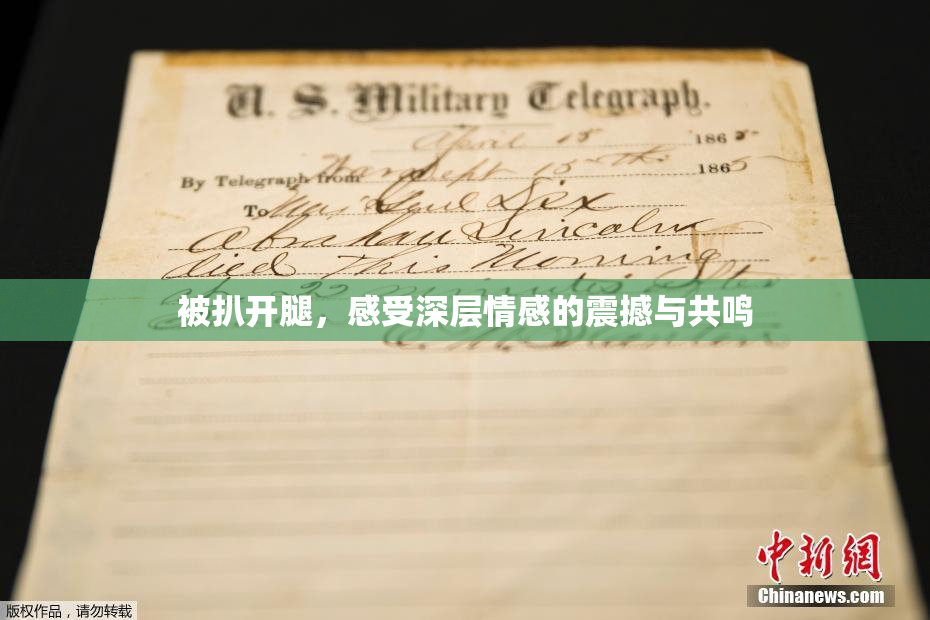 U. S. Military Telegraph.
April 15 1865
By Telegraph from War Dept 15th 1865
To Maj Genl Dix
Abraham Lincoln
died This Morning
at 22 minutes after
被扒开腿，感受深层情感的震撼与共鸣
中新网
Chinanews.com
版权作品，请勿转载